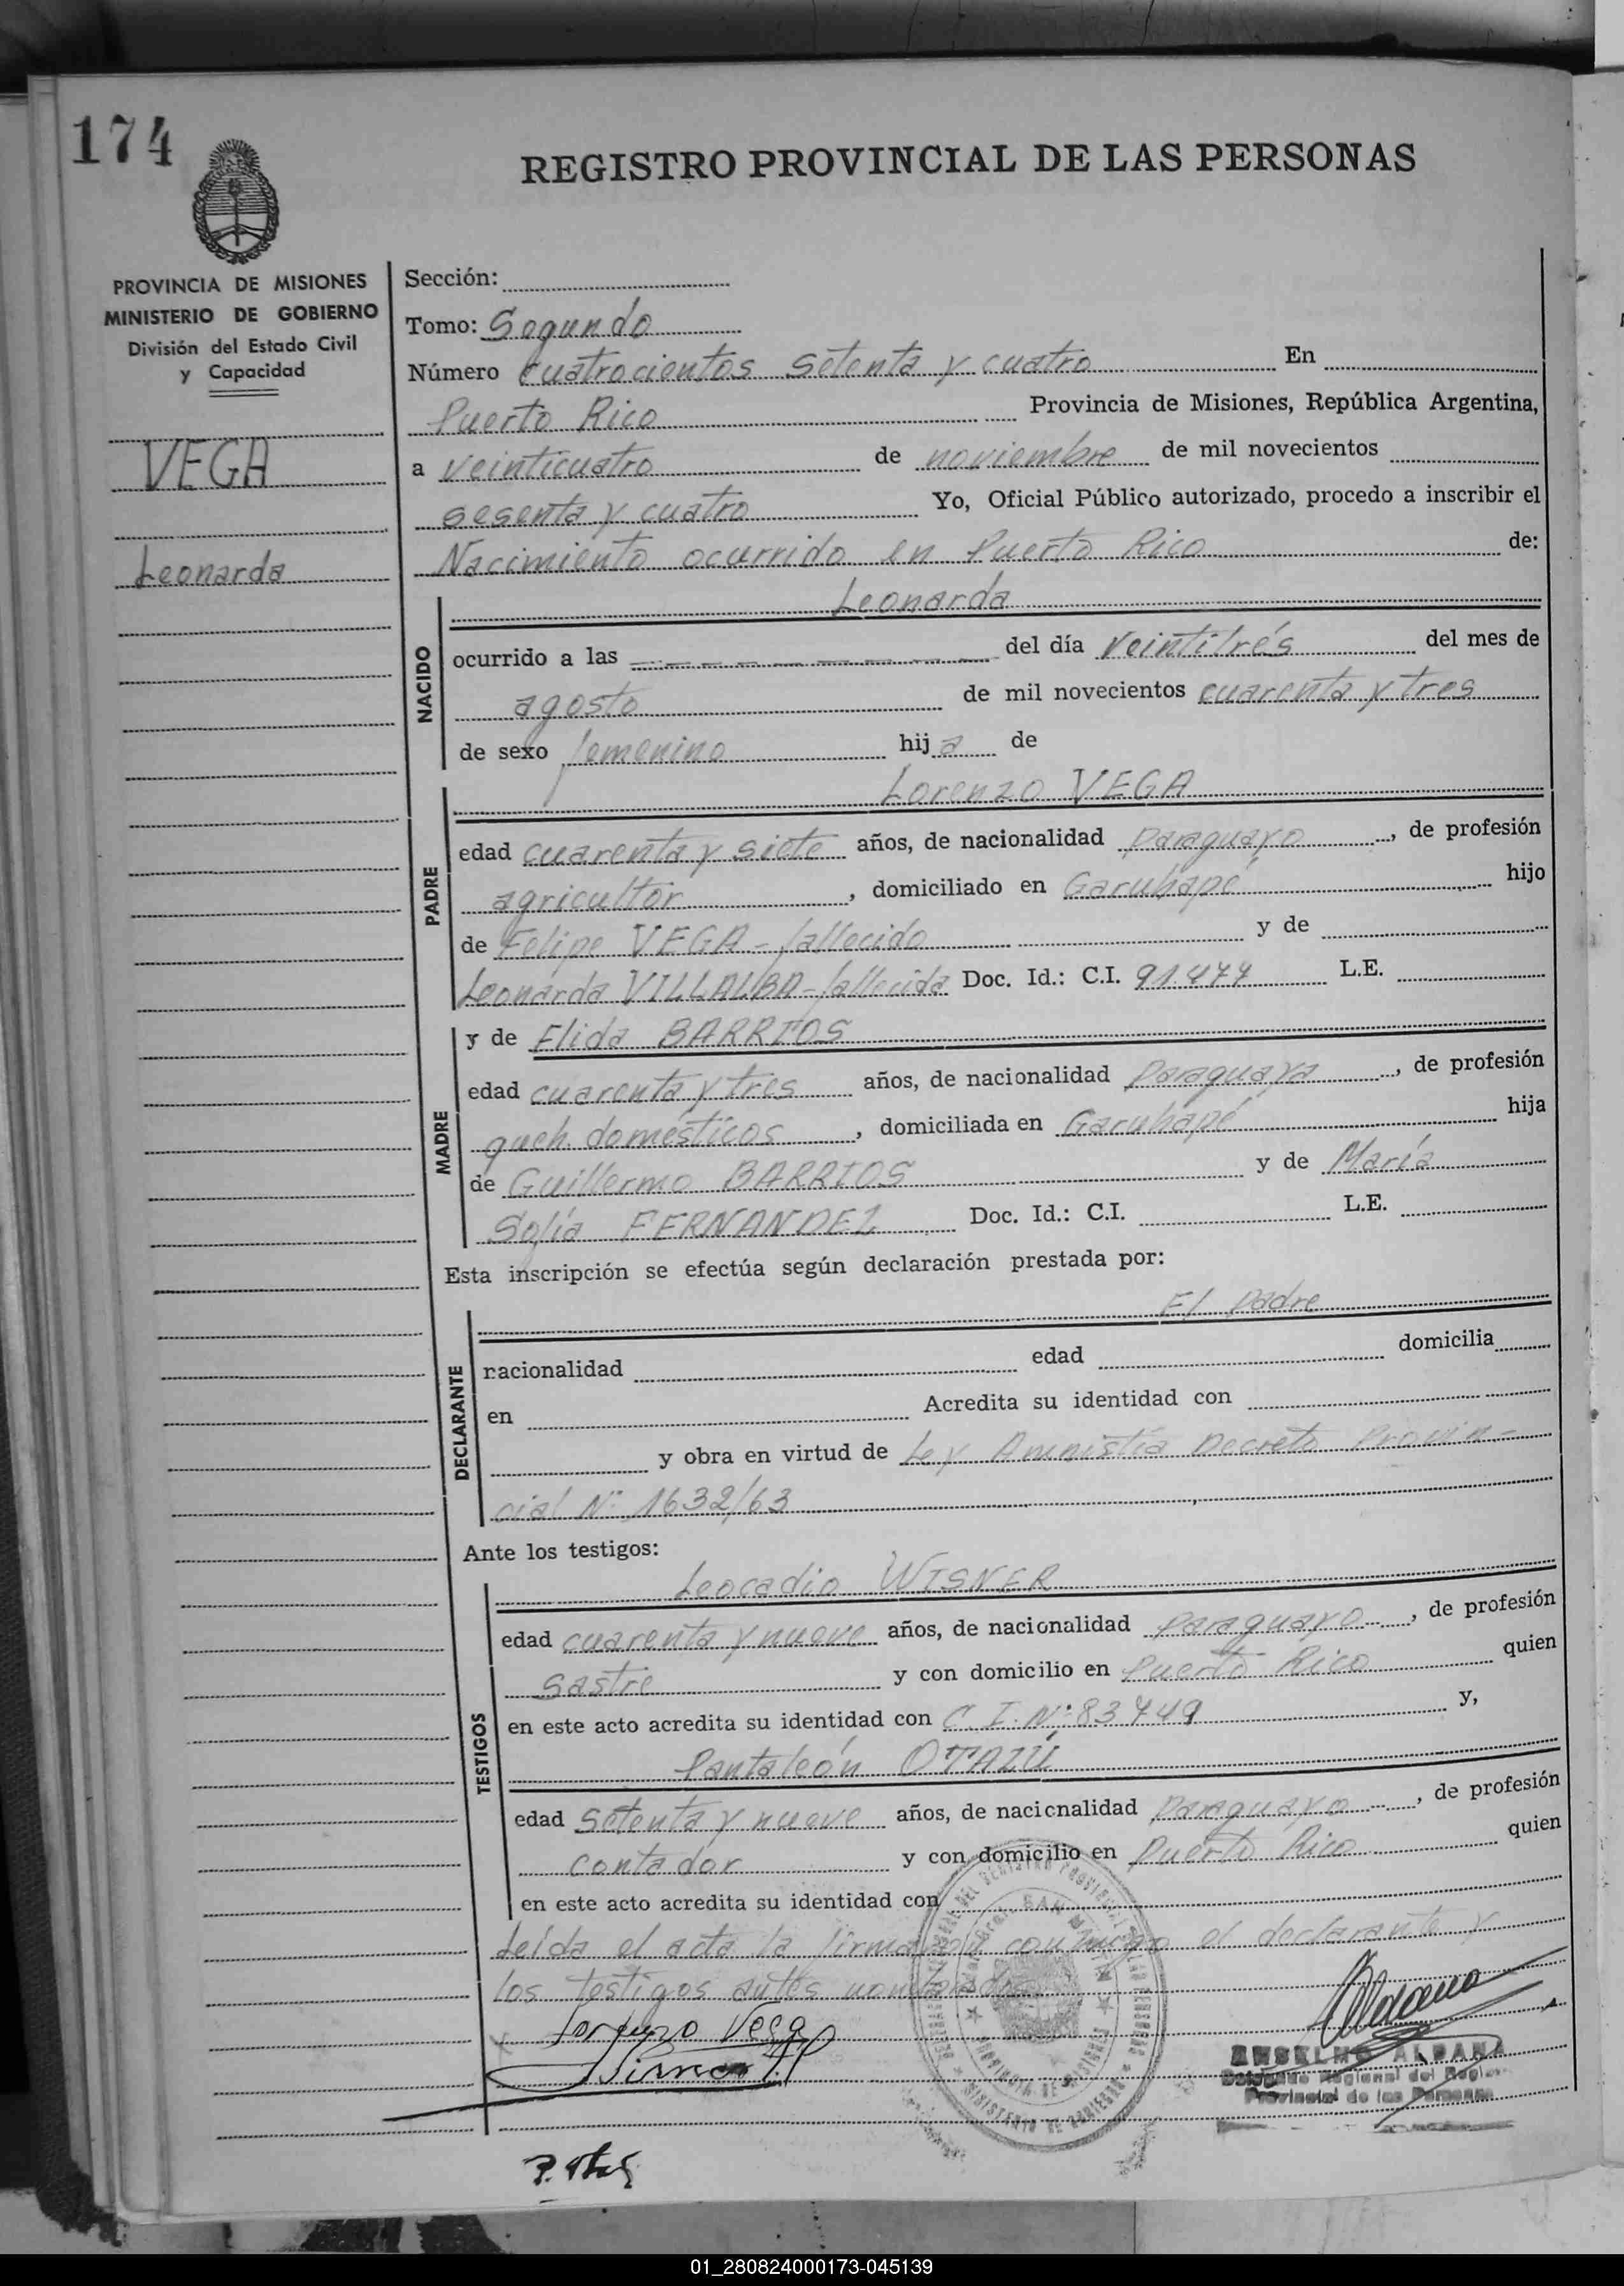 174
REGISTRO PROVINCIAL DE LAS PERSONAS
PROVINCIA DE MISIONES
MINISTERIO DE GOBIERNO
División del Estado Civil
y Capacidad
VEGA
Leonarda
Sección:
Tomo: Segundo
Número cuatrocientos setenta y cuatro En
Puerto Rico Provincia de Misiones, República Argentina,
a veinticuatro de noviembre de mil novecientos
sesenta y cuatro Yo, Oficial Público autorizado, procedo a inscribir el
Nacimiento ocurrido en Puerto Rico de:
NACIDO
Leonarda
ocurrido a las — — — — — — — — del día veintitrés del mes de
agosto de mil novecientos cuarenta y tres
de sexo femenino hija de
PADRE
Lorenzo VEGA
edad cuarenta y siete años, de nacionalidad paraguayo, de profesión
agricultor, domiciliado en Garuhapé hijo
de Felipe VEGA - fallecido y de
Leonarda VILLALBA - fallecida Doc. Id.: C.I. 91.477 L.E.
MADRE
y de Elida BARRIOS
edad cuarenta y tres años, de nacionalidad paraguaya, de profesión
queh. domésticos, domiciliada en Garuhapé hija
de Guillermo BARRIOS y de María
Sofía FERNANDEZ Doc. Id.: C.I. L.E.
Esta inscripción se efectúa según declaración prestada por:
DECLARANTE
El padre
nacionalidad edad domicilia
en Acredita su identidad con
y obra en virtud de Ley Amnistía Decreto Provin-
cial Nº 1632/63
Ante los testigos:
TESTIGOS
Leocadio WISNER
edad cuarenta y nueve años, de nacionalidad paraguayo, de profesión
sastre y con domicilio en Puerto Rico quien
en este acto acredita su identidad con C.I. Nº 83749 y,
Pantaleón OTAZÚ
edad setenta y nueve años, de nacionalidad paraguayo, de profesión
contador y con domicilio en Puerto Rico quien
en este acto acredita su identidad con
Leída el acta la firman conmigo el declarante y
los testigos antes nombrados
Lorenzo Vega
ANSELMO ALDANA
Delegado Regional del Registro
Provincial de las Personas
01_280824000173-045139